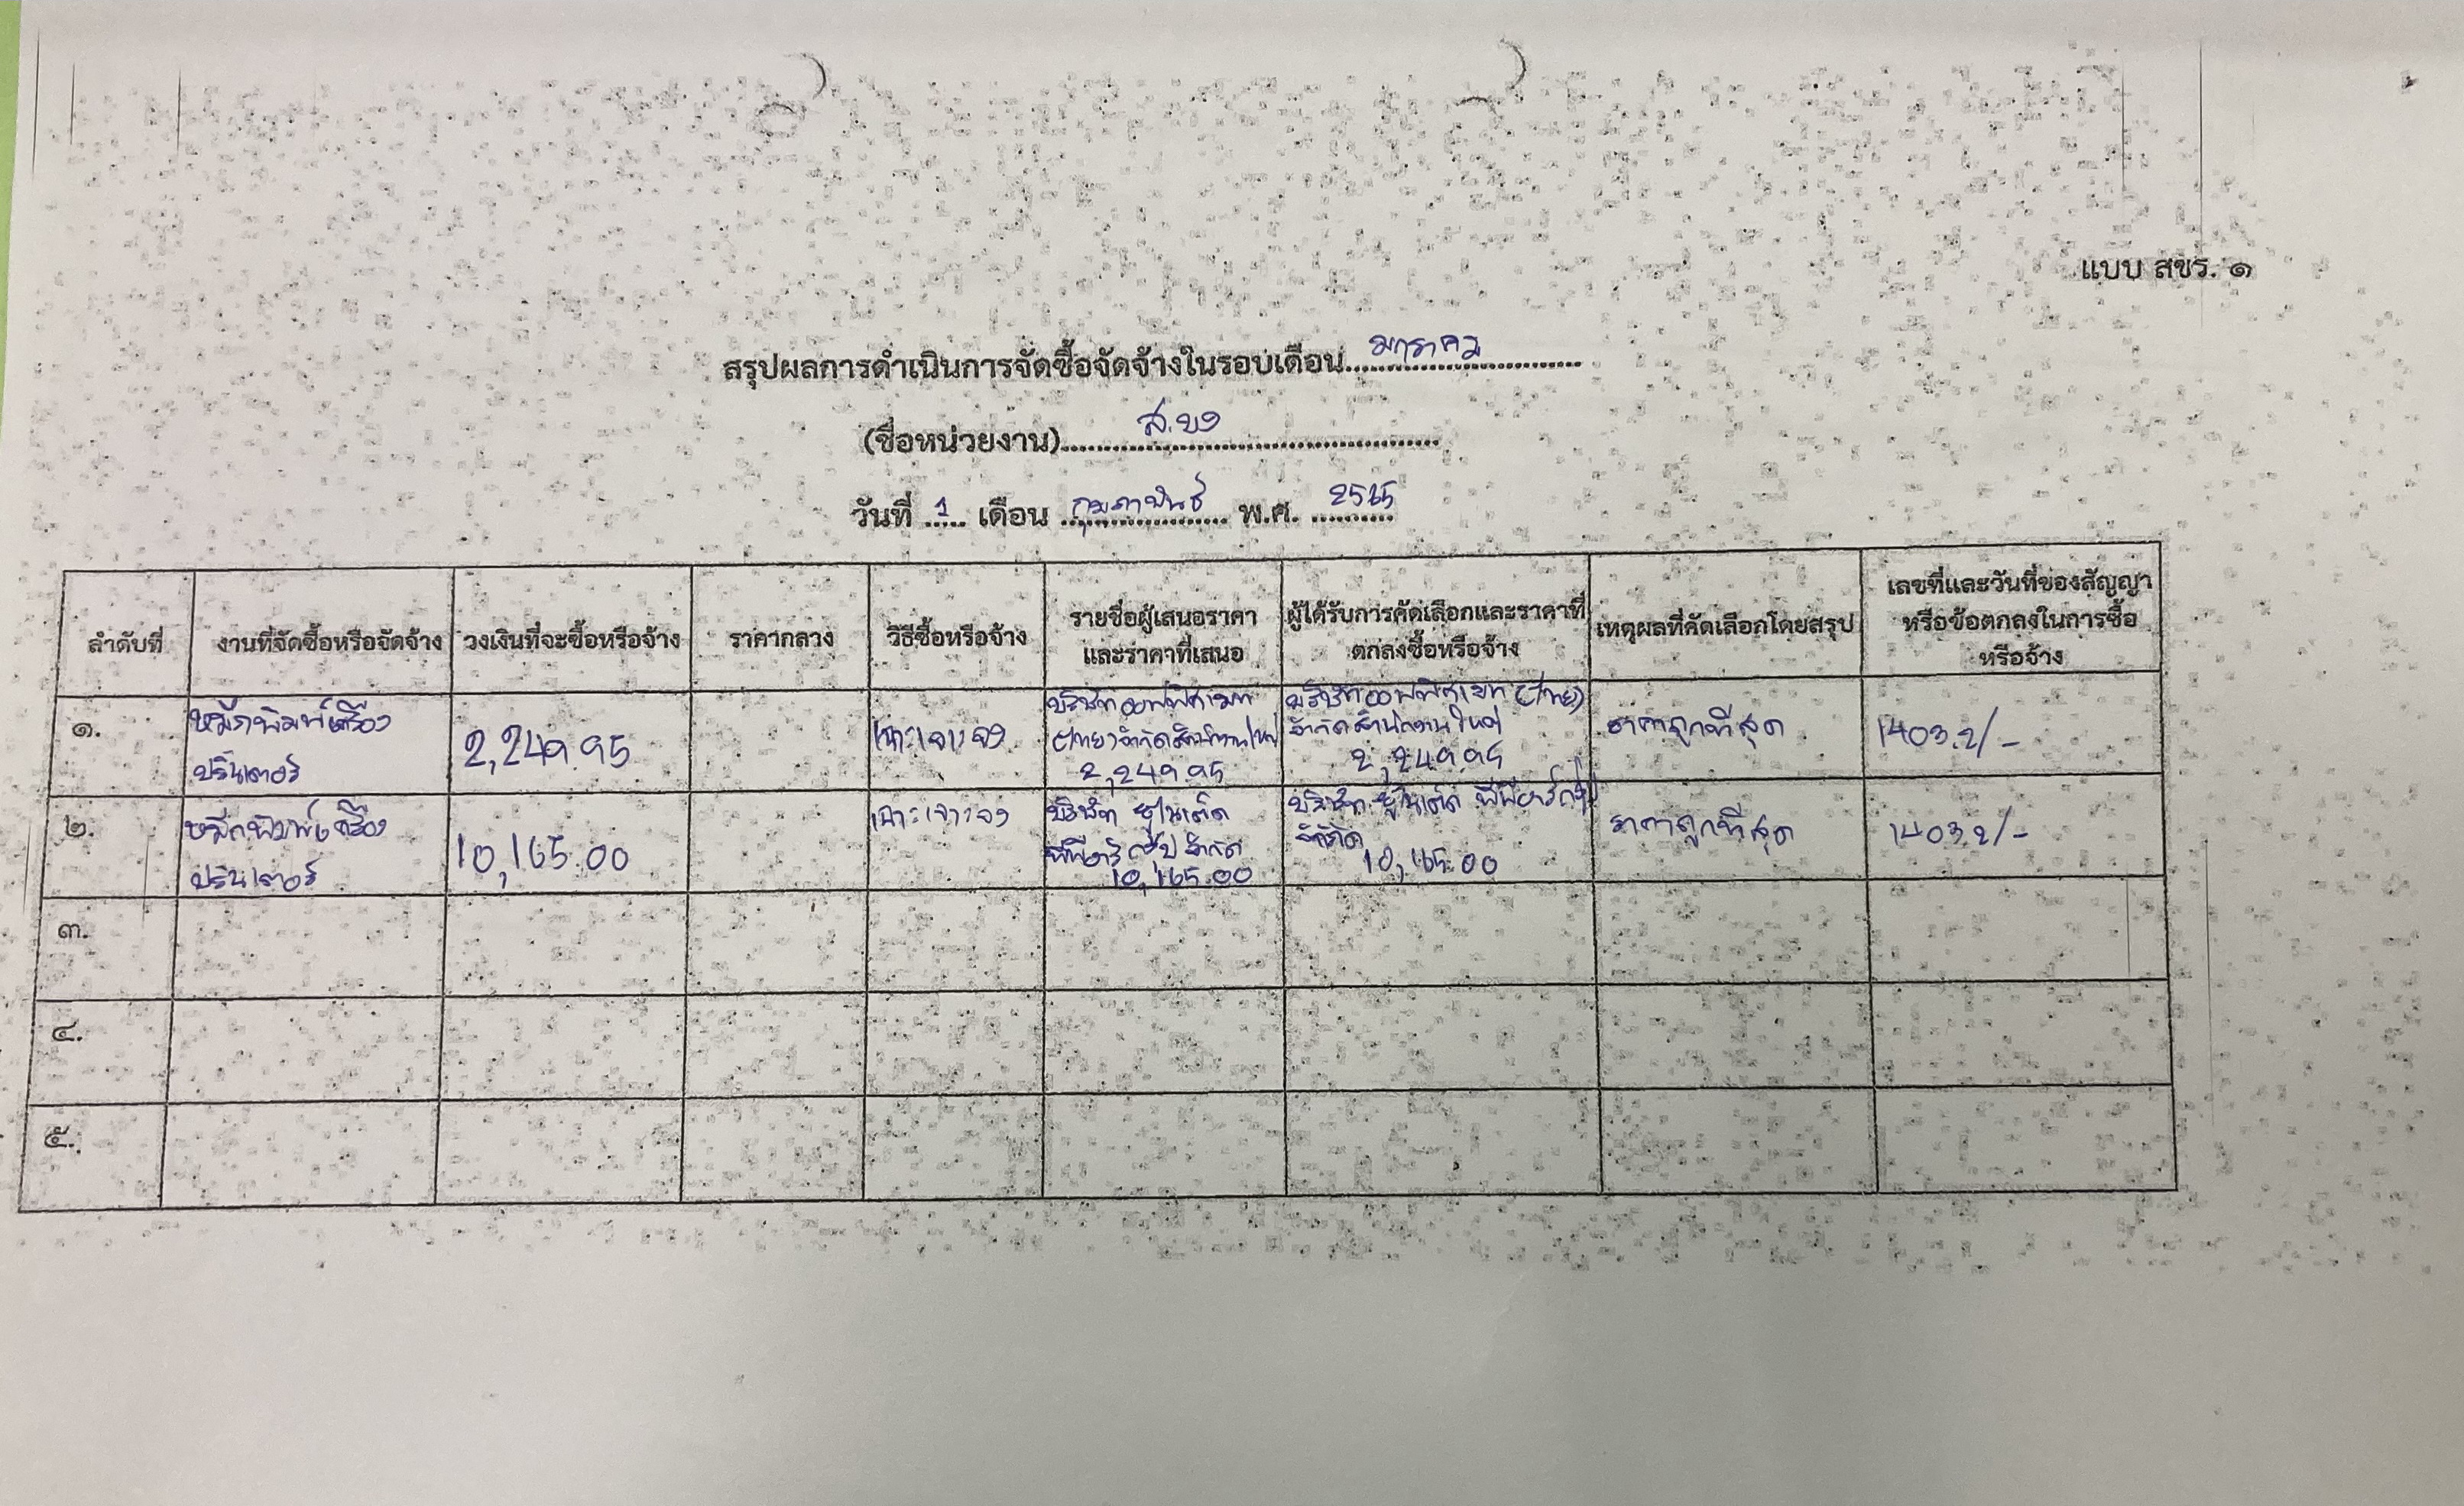 แบบ สขร. ๑
สรุปผลการดำเนินการจัดซื้อจัดจ้างในรอบเดือน....มกราคม....
(ชื่อหน่วยงาน)....ส.ยง....
วันที่ 1 เดือน กุมภาพันธ์ พ.ศ. 2565
ลำดับที่ งานที่จัดซื้อหรือจัดจ้าง วงเงินที่จะซื้อหรือจ้าง ราคากลวง วิธีซื้อหรือจ้าง รายชื่อผู้เสนอราคา และราคาที่เสนอ ผู้ได้รับการคัดเลือกและราคาที่ ตกลงซื้อหรือจ้าง เหตุผลที่คัดเลือกโดยสรุป เลขที่และวันที่ของสัญญา หรือข้อตกลงในการซื้อ หรือจ้าง
๑. หมึกพิมพ์เครื่อง ปริ้นเตอร์ 2,249.95 เฉพาะเจาะจง บริษัท ออฟฟิศเมท (ไทย) จำกัด สำนักงานใหญ่ 2,249.95 บริษัท ออฟฟิศเมท (ไทย) จำกัด สำนักงานใหญ่ 2,249.95 ราคาถูกที่สุด 1403.2/-
๒. หมึกพิมพ์เครื่อง ปริ้นเตอร์ 10,165.00 เฉพาะเจาะจง บริษัท ยูไนเต็ด พีพีอาร์ กรุ๊ป จำกัด 10,165.00 บริษัท ยูไนเต็ด พีพีอาร์ กรุ๊ป จำกัด 10,165.00 ราคาถูกที่สุด 1403.2/-
๓.
๔.
๕.